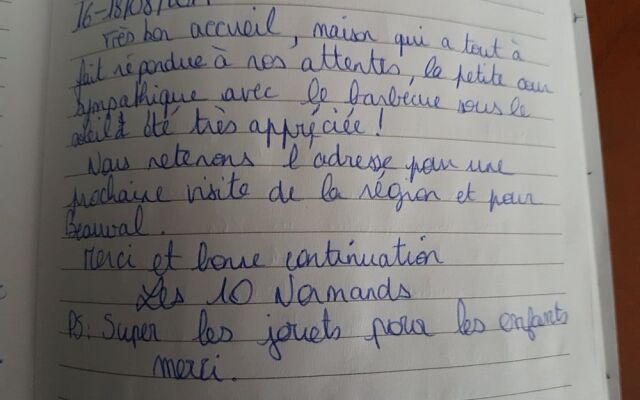 16-18/08/
Très bon accueil, maison qui a tout à
fait répondue à nos attentes, la petite cour
sympathique avec le barbecue sous le
soleil à été très appréciée !
Nous retenons l'adresse pour une
prochaine visite de la région et pour
Beauval.
Merci et bonne continuation
Les 10 Normands
PS: Super les jouets pour les enfants
merci.